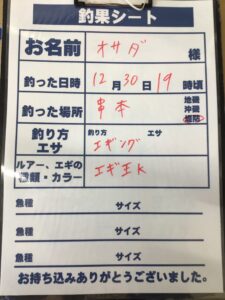 釣果シート
お名前 オサダ 様
釣った日時 12月30日19時頃
釣った場所 串本 地磯 沖磯 堤防
釣り方 エサ 釣り方 エサ エギング
ルアー、エギの種類・カラー エギ王K
魚種 サイズ
魚種 サイズ
魚種 サイズ
お持ち込みありがとうございました。